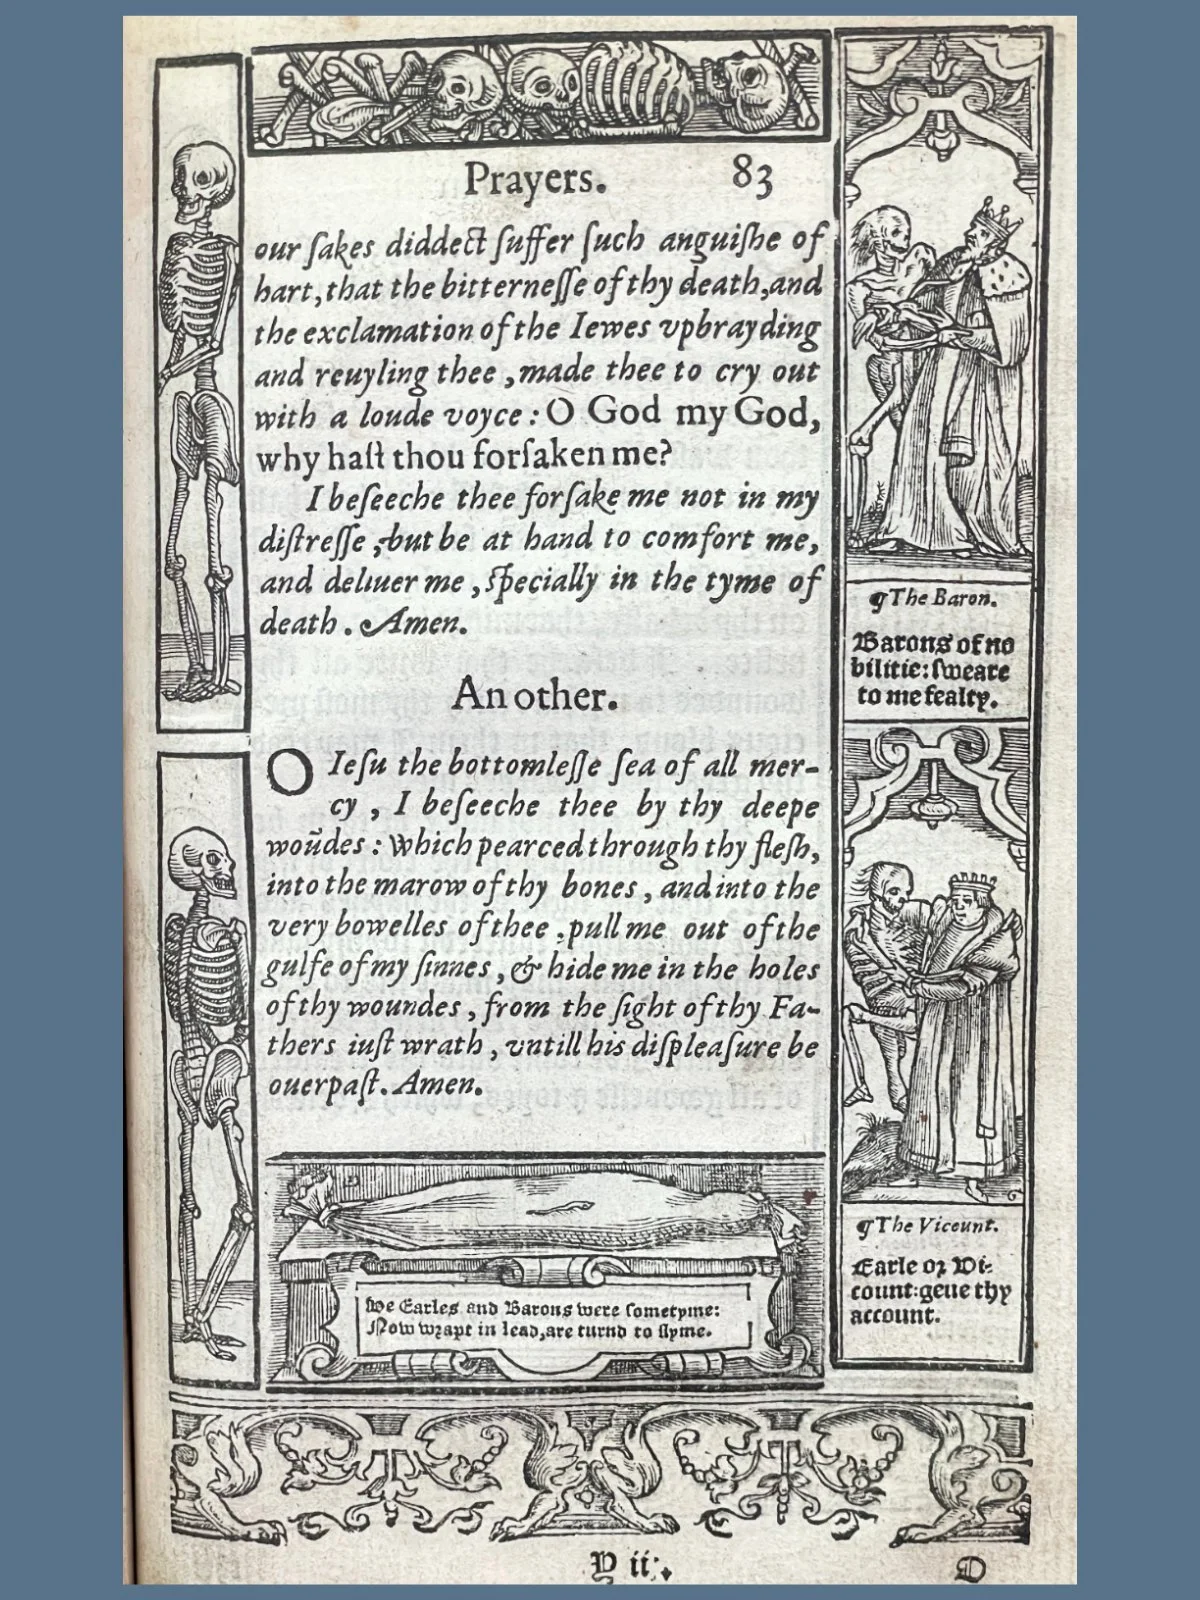 Prayers. 83
our ſakes diddeſt ſuffer ſuch anguiſhe of
hart, that the bitterneſſe of thy death, and
the exclamation of the Iewes vpbrayding
and reuyling thee, made thee to cry out
with a loude voyce: O God my God,
why haſt thou forſaken me?
I beſeeche thee forſake me not in my
diſtreſſe, but be at hand to comfort me,
and deliuer me, ſpecially in the tyme of
death. Amen.
Another.
O Ieſu the bottomleſſe ſea of all mer-
cy, I beſeeche thee by thy deepe
woūdes: which pearced through thy fleſh,
into the marow of thy bones, and into the
very bowelles of thee, pull me out of the
gulfe of my ſinnes, & hide me in the holes
of thy woundes, from the ſight of thy Fa-
thers iuſt wrath, vntill his diſpleaſure be
ouerpaſt. Amen.
We Earles and Barons were ſometyme:
Now wrapt in lead, are turnd to ſlyme.
¶ The Baron.
Barons of no
bilitie: ſweare
to me fealty.
¶ The Vicount.
Earle or Vi-
count: geue thy
account.
Y ii. O